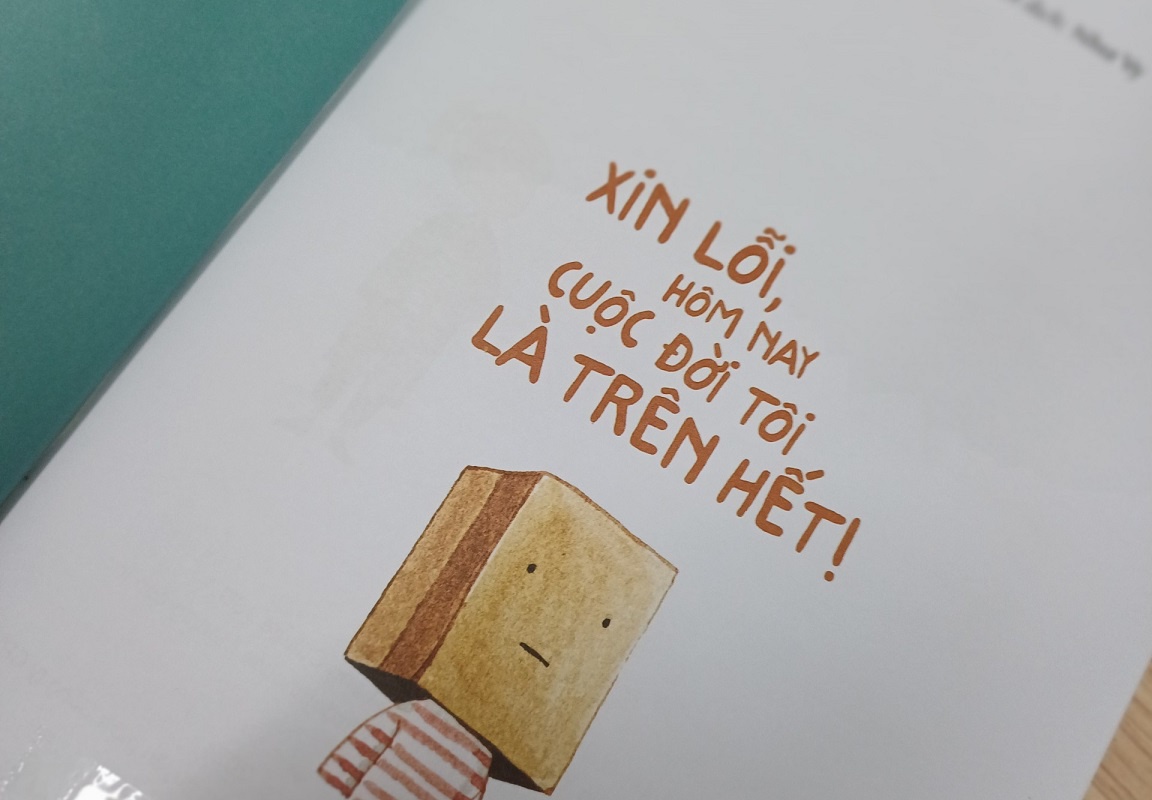 XIN LỖI,
HÔM NAY
CUỘC ĐỜI TÔI
LÀ TRÊN HẾT!